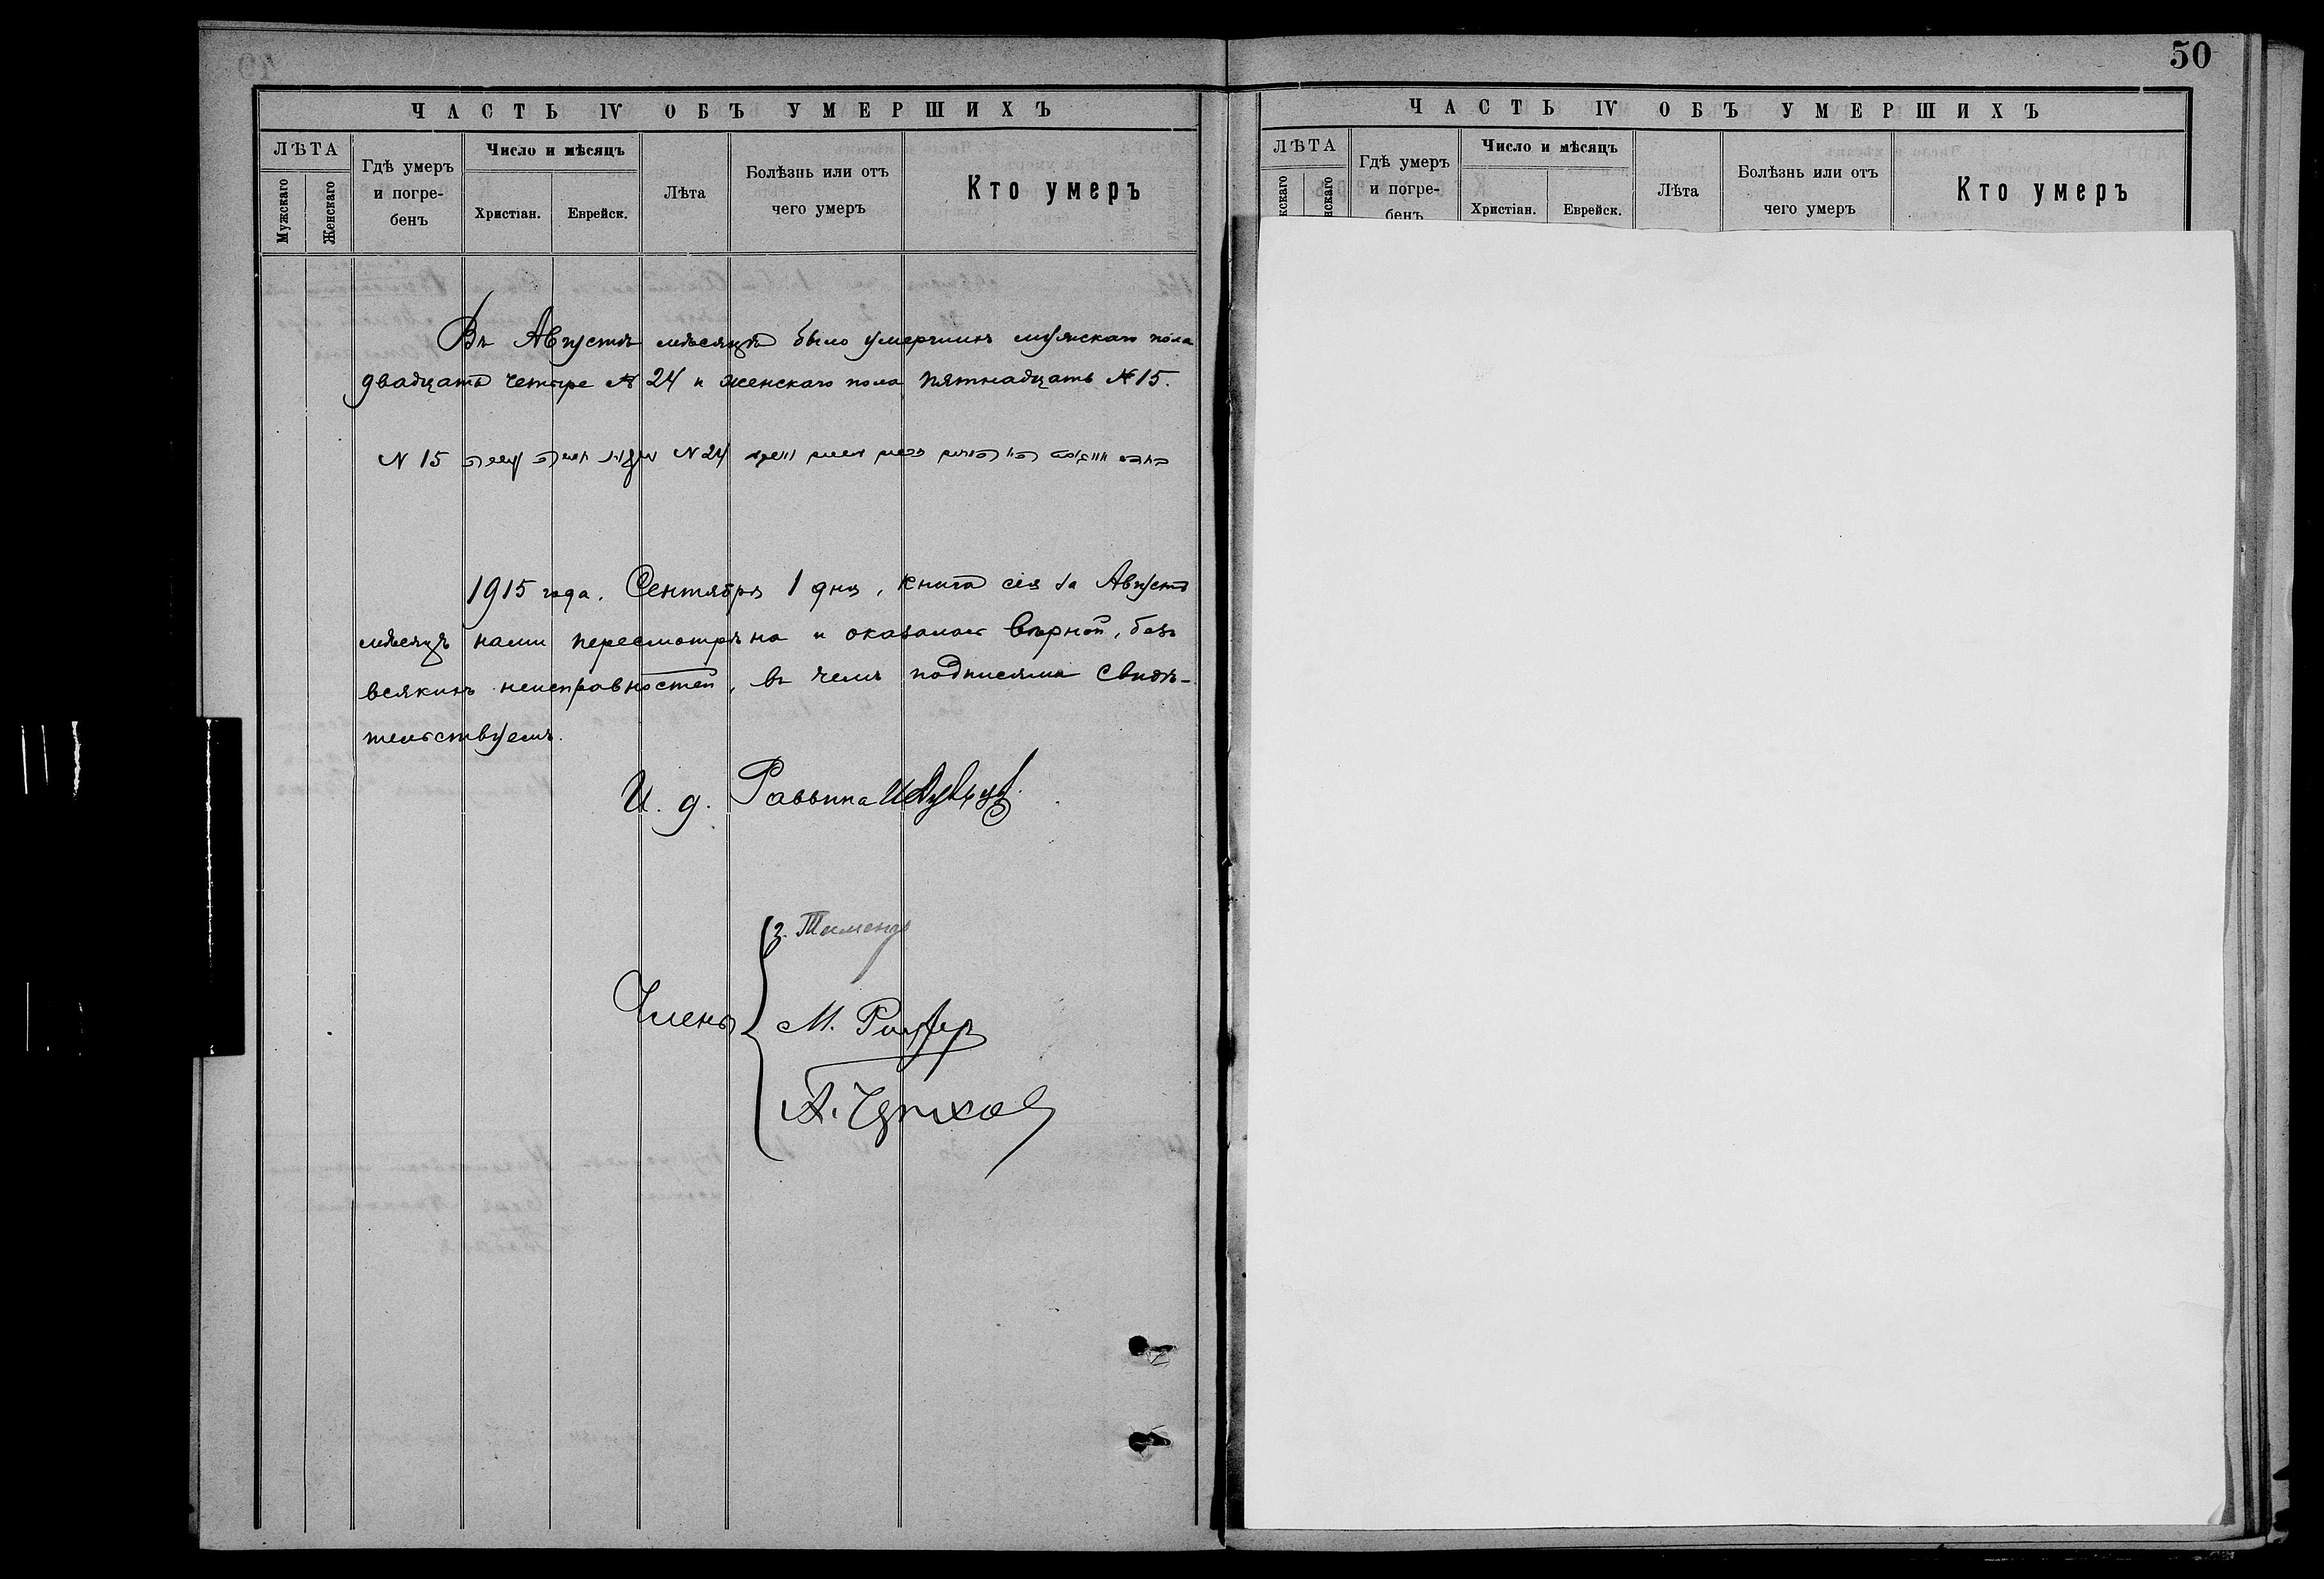 ЧАСТЬ IV ОБЪ УМЕРШИХЪ
ЛѢТА
Мужскаго
Женскаго
Гдѣ умеръ
и погре-
бенъ
Число и мѣсяцъ
Христіан.
Еврейск.
Лѣта
Болѣзнь или отъ
чего умеръ
Кто умеръ
Въ Августѣ мѣсяцѣ было умершихъ мужскаго пола
двадцать четыре № 24 и женскаго пола пятнадцать № 15.
N 24 N 15
1915 года. Сентября 1 дня, книга сія за Августъ
мѣсяцъ нами пересмотрѣна и оказалась вѣрной, безъ
всякихъ неисправностей, въ чемъ подписями свидѣ-
тельствуемъ.
И. д. Раввина
Члены
М.
А.
50
ЧАСТЬ IV ОБЪ УМЕРШИХЪ
ЛѢТА
жскаго
нскаго
Гдѣ умеръ
и погре-
бенъ
Число и мѣсяцъ
Христіан.
Еврейск.
Лѣта
Болѣзнь или отъ
чего умеръ
Кто умеръ